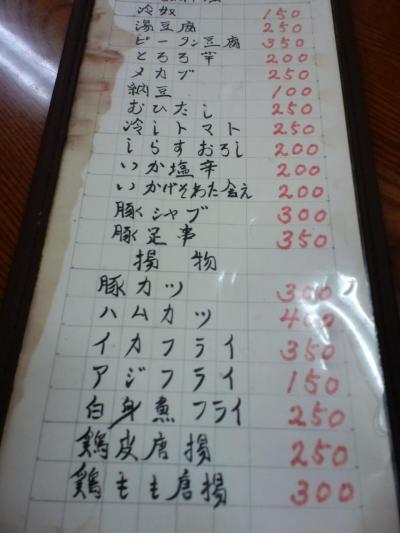 冷奴 150
湯豆腐 250
ピータン豆腐 350
とろろ芋 200
メカブ 250
納豆 100
おひたし 250
冷しトマト 250
しらすおろし 200
いか塩辛 200
いかげそわた会え 200
豚シャブ 300
豚足 350
揚物
豚カツ 300
ハムカツ 400
イカフライ 350
アジフライ 150
白身魚フライ 250
鶏皮唐揚 250
鶏もも唐揚 300